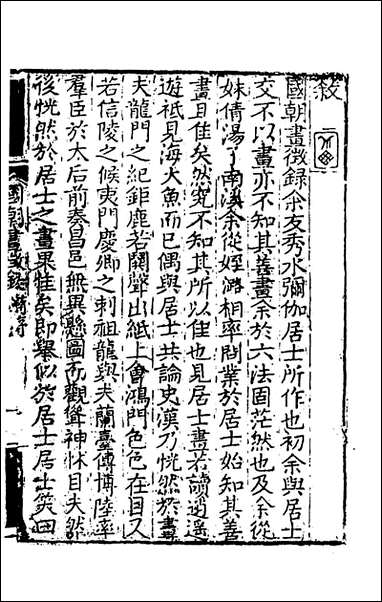 敘
國朝畫徵録余友秀水彌伽居士所作也初余與居士
交不以畫亦不知其善畫余於六法固茫然也及余從
妹倩湯南溪余從姪潞相率問業於居士始知其善
畫且佳矣然究不知其所以佳也見居士畫若讀逍遥
遊祇見海大魚而已偶與居士共論史漢乃恍然於畫
夫龍門之紀鉅鹿若鬬聲出紙上會鴻門色色在目又
若信陵之候夷門慶卿之刺祖龍與夫蘭臺傳博陸率
羣臣於太后前奏昌邑無異縣圖而觀聳神怵目夫然
後恍然於居士之畫果佳矣即舉似於居士居士笑曰
國朝畫徵錄